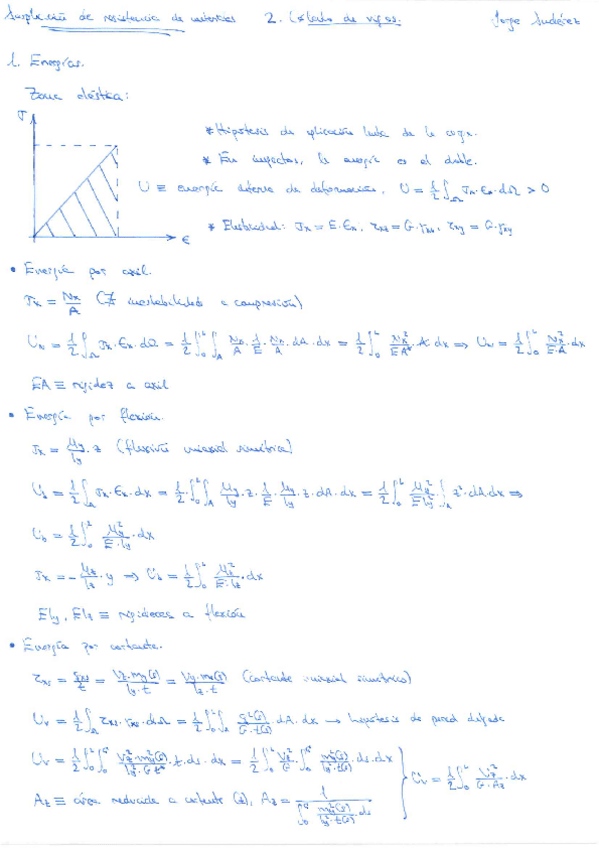 Ampliación de resistencia de materiales 2. Cálculo de vigas. Jorge
1. Energías.
Zona elástica:
σ
* Hipótesis de aplicación lenta de la carga.
* En impactos, la energía es el doble.
U ≡ energía interna de deformación, U = 1/2 ∫_Ω σx·εx·dΩ > 0
* Elasticidad: σx = E·εx, τxs = G·γxs, τxy = G·γxy
ε
• Energía por axil.
σx = Nx/A (∄ inestabilidades a compresión)
Ux = 1/2 ∫_Ω σx·εx·dΩ = 1/2 ∫_0^L ∫_A Nx/A · 1/E · Nx/A · dA·dx = 1/2 ∫_0^L Nx²/(EA²) · A·dx ⇒ Ux = 1/2 ∫_0^L Nx²/(E·A) dx
EA ≡ rigidez a axil
• Energía por flexión.
σx = My/Iy · z (flexión uniaxial simétrica)
Ub = 1/2 ∫_Ω σx·εx·dx = 1/2 ∫_0^L ∫_A My/Iy · z · 1/E · My/Iy · z·dA·dx = 1/2 ∫_0^L My²/(E Iy²) ∫_A z²·dA·dx ⇒
Ub = 1/2 ∫_0^L My²/(E·Iy) · dx
σx = - Mz/Iz · y ⇒ Ub = 1/2 ∫_0^L Mz²/(E·Iz) · dx
EIy, EIz ≡ rigideces a flexión
• Energía por cortante.
τxs = qxs/t = Vz·my(s)/(Iy·t) = Vy·mz(s)/(Iz·t) (cortante uniaxial simétrico)
Uv = 1/2 ∫_Ω τxs·γxs·dΩ = 1/2 ∫_0^L ∫_A q²(s)/(G·t²(s)) · dA·dx → hipótesis de pared delgada
Uv = 1/2 ∫_0^L ∫_0^s Vz²·my²(s)/(Iy²·G·t²) · t·ds·dx = 1/2 ∫_0^L Vz²/G ∫_0^s my²(s)/(Iy²·t(s)) · ds·dx
Az ≡ área reducida a cortante (z), Az = 1/(∫_0^s my²(s)/(Iy²·t(s)) · ds)
} Uv = 1/2 ∫_0^L Vz²/(G·Az) · dx